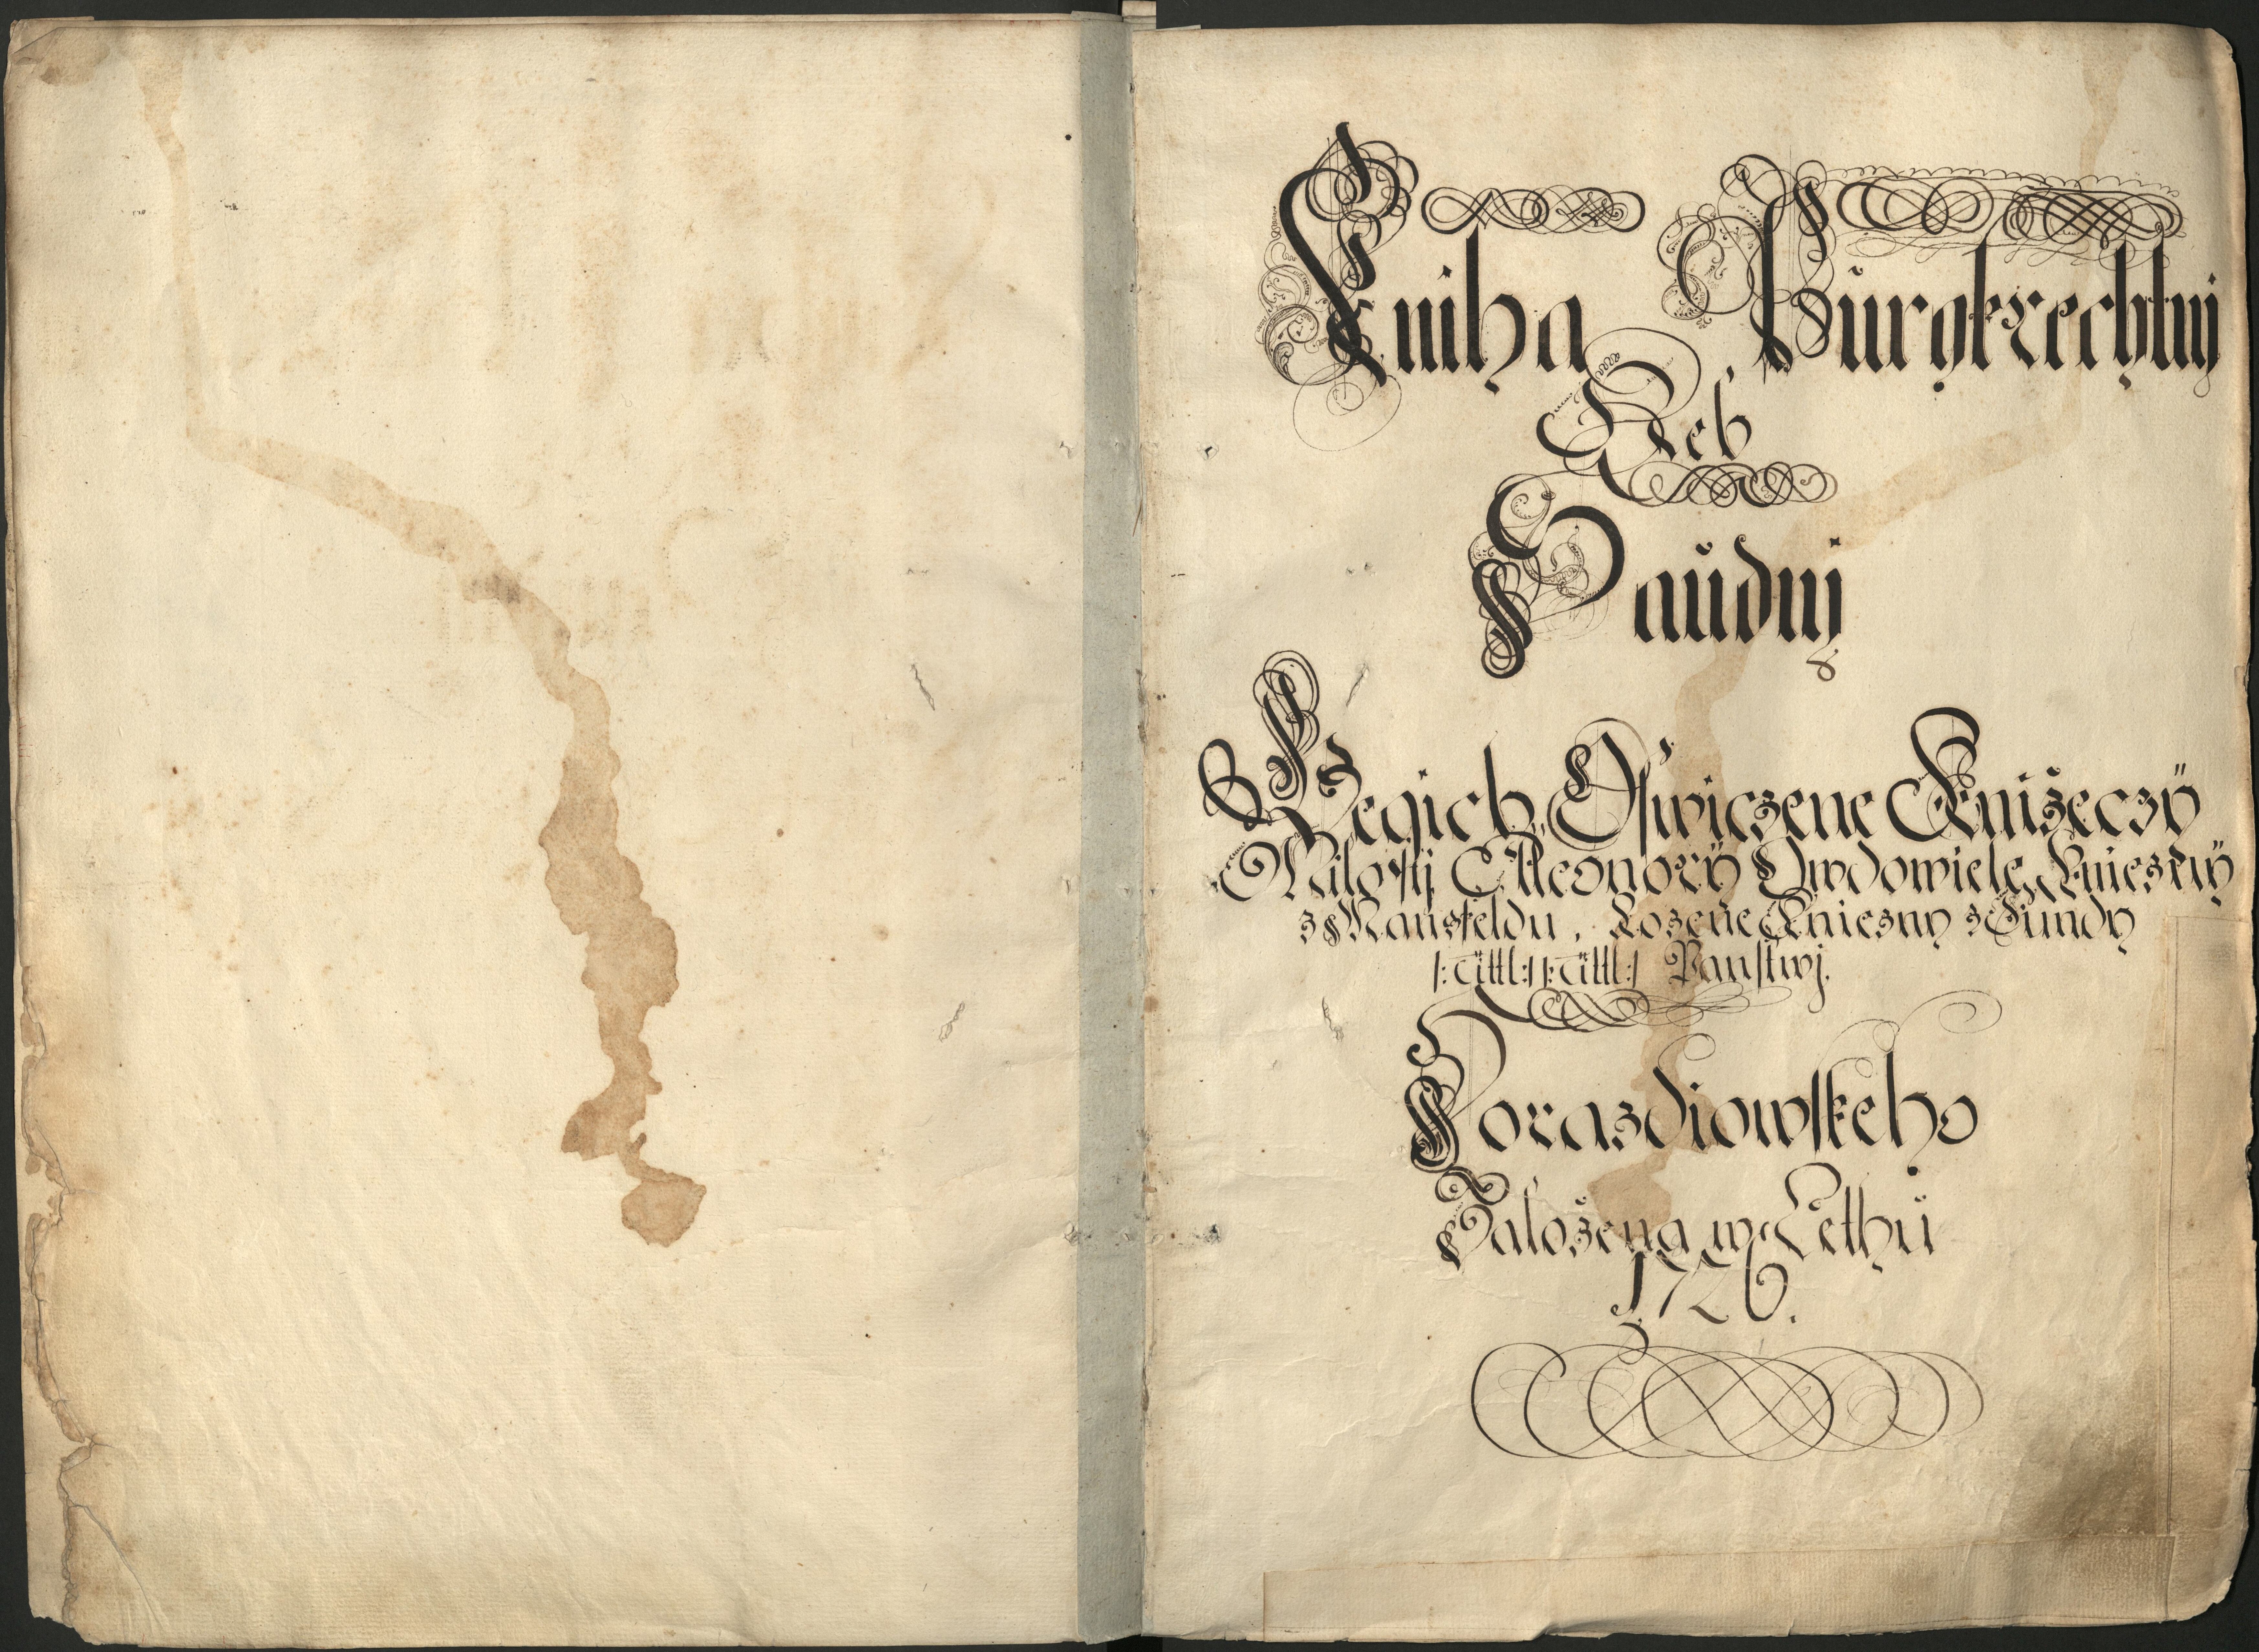 Kniha Purgkrechtnj
Neb
Saudnj
Jegich Oswiczene Knižeczÿ
Milosti Elleonorÿ Owdowiele Kniežnÿ
z Mansfeldu, Rozene Kniezny
/: Tittl: /: Tittl: / Panstwj.
Horazdiowskeho
Založena w Lethu
1726.